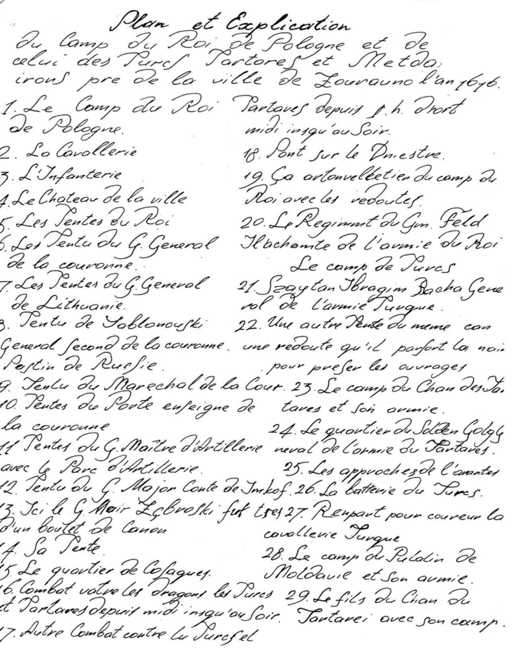 Plan et Explication
du Camp du Roi de Pologne et de
celui des Turcs Tartares et Metda,
irons pre de la ville de Zourauno l'an 1676.
1. Le Camp du Roi
de Pologne.
2. La Cavallerie
3. L'Infanterie
4 Le Chateau de la ville
5. Les Tentes du Roi
6. Les Tentu du G. General
de la couronne.
7. Les Tentes du G. General
de Lithuanie.
8. Tentu de Jablonouski
General second de la couronne.
Postin de Russie.
9. Tentu du Marechal de la Cour.
10. Tentes du Porte enseigne de
la couronne
11 Tentes du G. Maitre d'Artillerie
avec le Parc d'Artillerie.
12. Tentu du G. Major Conte de Imhof.
13. Ici le G Moir Zebroski fut tses
d'un boulet de Canon
14. Sa Tente.
15. Le quartier de Cosaques.
16. Combat votre les dragons les Turcs
et Tartares depuis midi insqu'au Soir.
17. Autre Combat contre lu Turcs et
Tartares depuis 1. h. dvort
midi insqu'au Soir.
18. Pont sur le Dniestre.
19. Ça artonvelletien du camp du
Roi avec les redoutes.
20. Le Regimnt du Gm. Feld
Ilbchamte de l'armie du Roi
Le camp de Turcs
21. Szaytan Ibragim Bacha Gene
ral de l'armie Turque.
22. Une autre Tente du meme can
une redoute qu'il parfort la noir
pour preser les ouvrages
23. Le camp du Chan des Tar
tares et son armie.
24. Le quartier du Solden Golgly
neval de l'armie du Tartares.
25. Les approches de l'avantes
26. La batterie du Turcs.
27. Renpart pour coureur la
cavallerie Turque
28. Le camp du Palatin de
Moldavie et son armie.
29 Le fils du Chan du
Tartarei avec son camp.